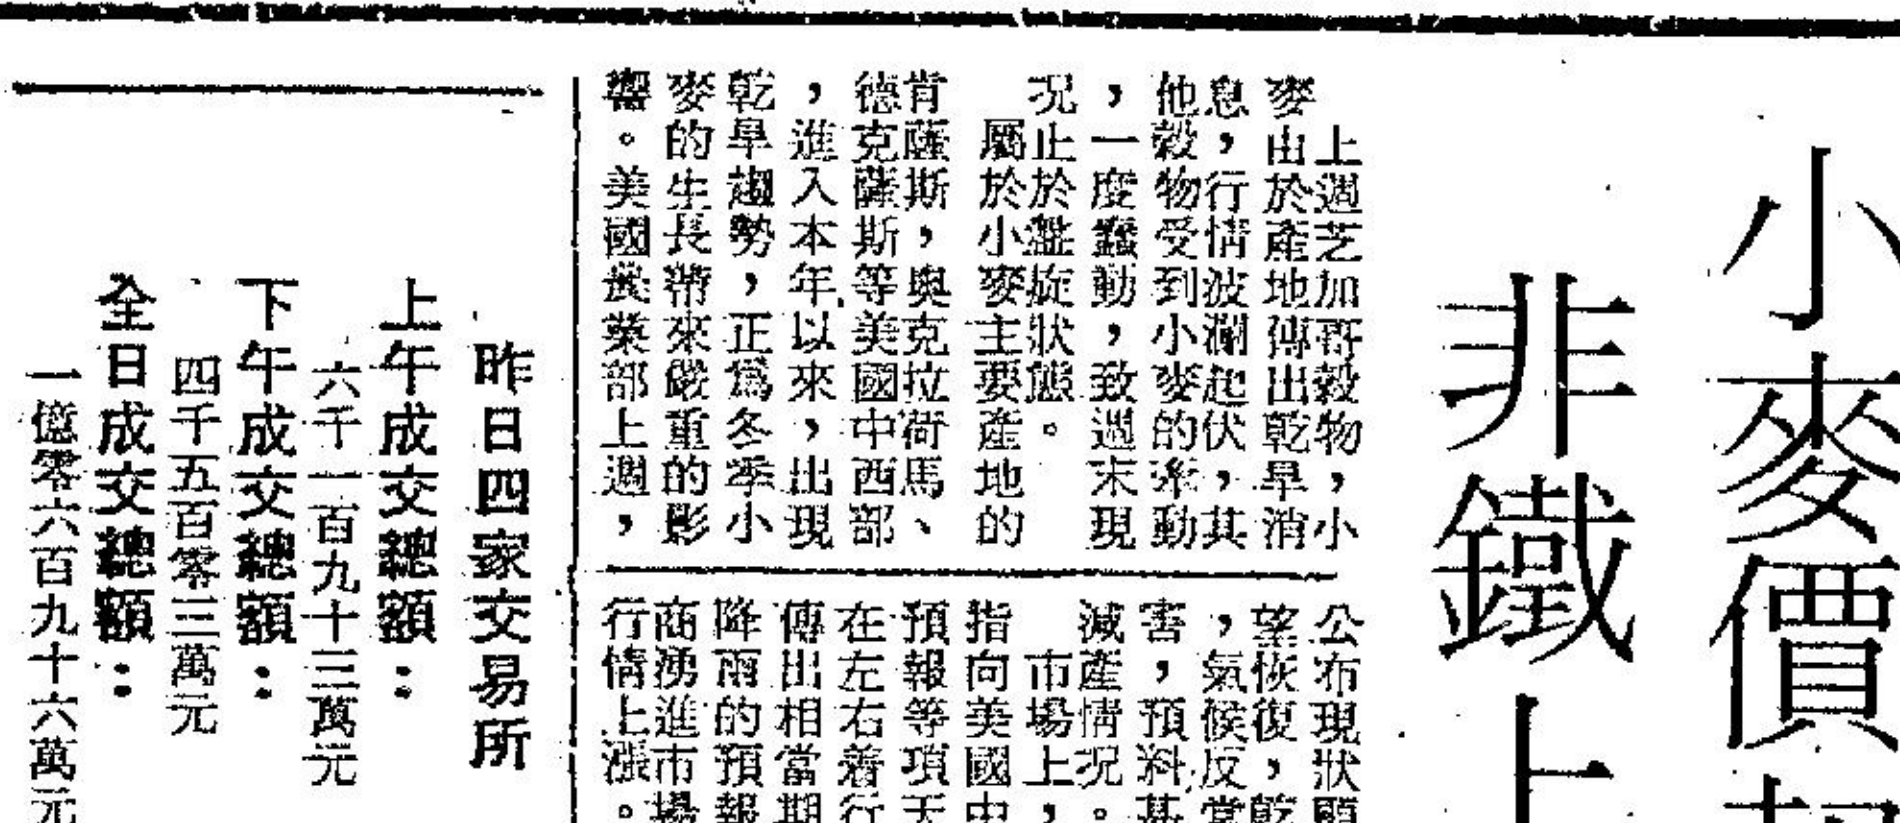 小麥價
非鐵上
上週芝加哥穀物，小
麥由於產地傳出乾旱消
息，行情波瀾起伏，其
他穀物受到小麥的牽動
，一度蠢動，致週末現
況止於盤旋狀態。
屬於小麥主要產地的
肯薩斯，奧克拉荷馬、
德克薩斯等美國中西部
，進入本年以來，出現
乾旱趨勢，正為冬季小
麥的生長帶來嚴重的影
響。美國農業部上週，
公布現狀顯
望恢復，乾
，氣候反常
害，預料甚
減產情況。
市場上，
指向美國中
預報等項天
在左右着行
傳出相當期
降雨的預報
商湧進市場
行情上漲。
昨日四家交易所
上午成交總額：
六千一百九十三萬元
下午成交總額：
四千五百零三萬元
全日成交總額：
一億零六百九十六萬元